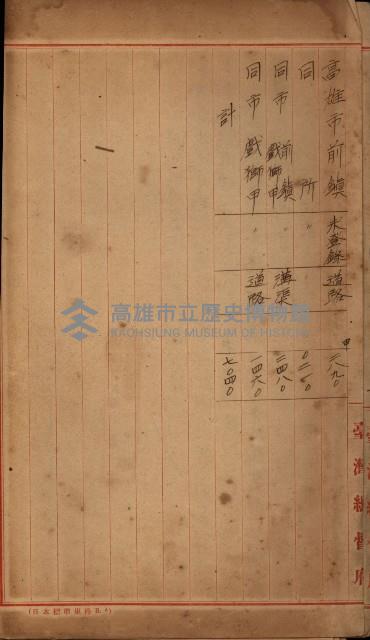 高雄市前鎮 未登錄 道路 甲 二八九〇
同 所 〃 〃 〇二一〇
同市 前鎮 戲獅甲 〃 溝渠 二四八〇
同市 戲獅甲 〃 道路 一四六〇
計 七〇四〇
臺灣總督府
高雄市立歷史博物館
KAOHSIUNG MUSEUM OF HISTORY